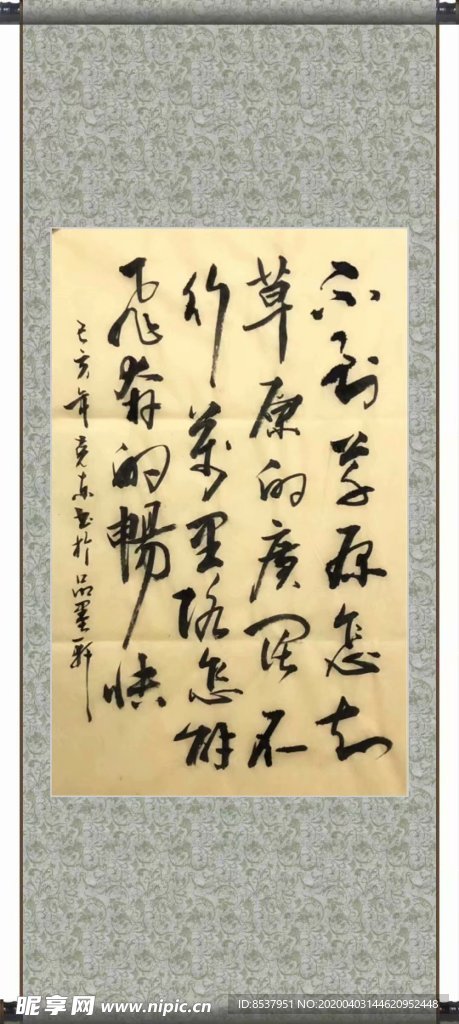 不到草原怎知
草原的廣闊不
行萬里路怎
飛奔的暢快
己亥年東书於品墨軒
昵享网 www.nipic.cn
ID:8537951 NO:20200403144620952448